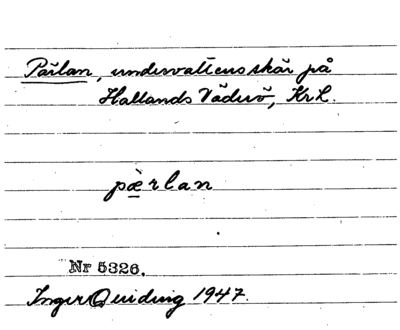 Pärlan, undervattensskär på
Hallands Väderö, Kr L.
pæ̀rlan
Nr 5326.
Inger Quiding 1947.